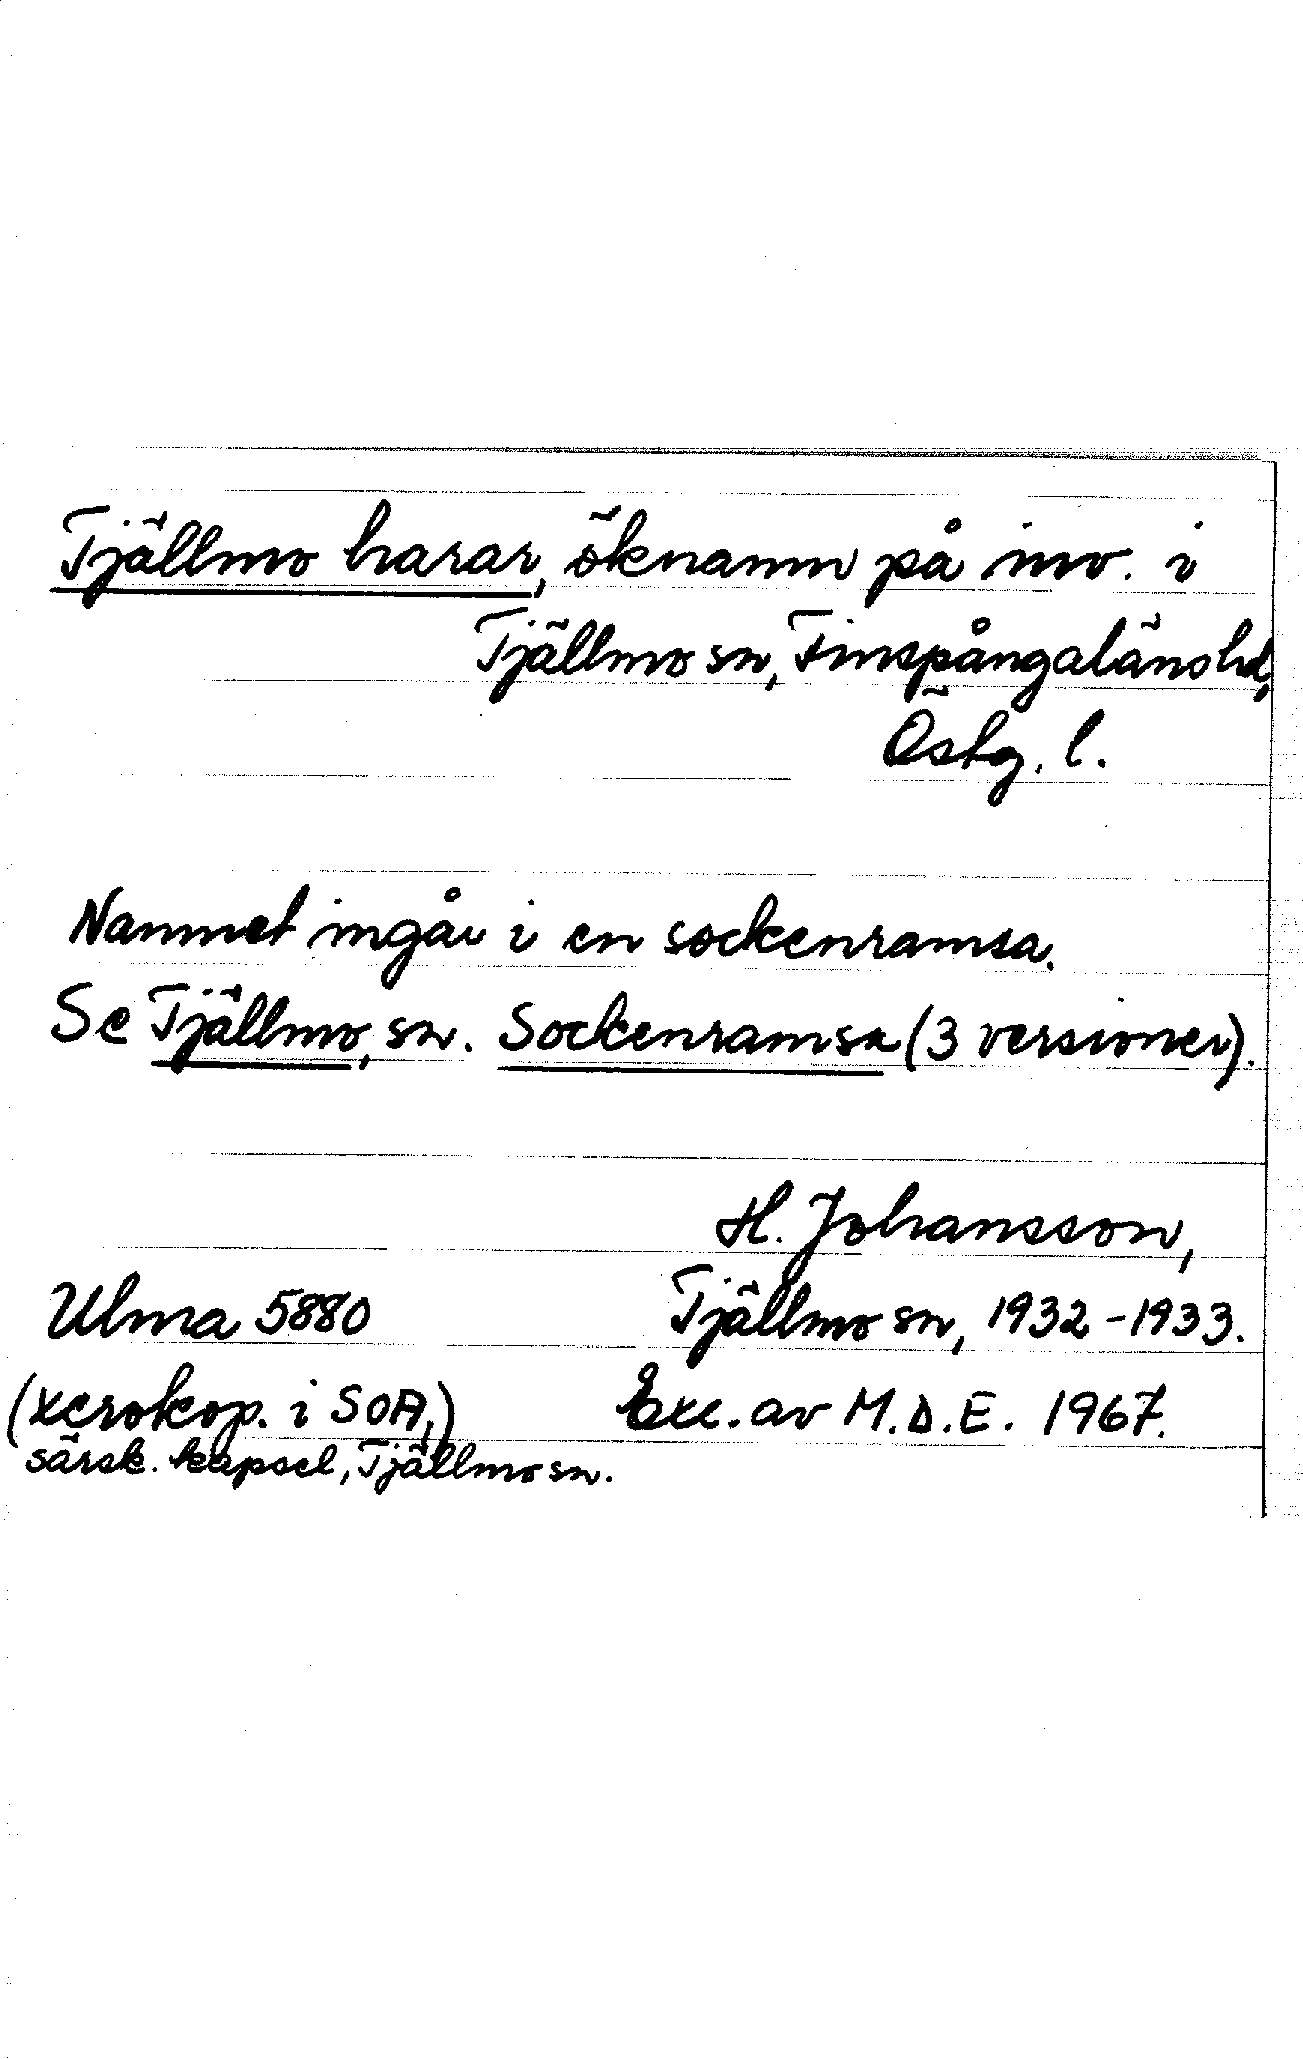 Tjällmo harar, öknamn på inv. i
Tjällmo sn, Finspångalänshd,
Östg. l.
Namnet ingår i en sockenramsa.
Se Tjällmo, sn. Sockenramsa (3 versioner).
H. Johansson,
Ulma 5880 Tjällmo sn, 1932-1933.
(xerokop. i SOA,) Exc. av M.D.E. 1967.
särsk. kapsel, Tjällmo sn.